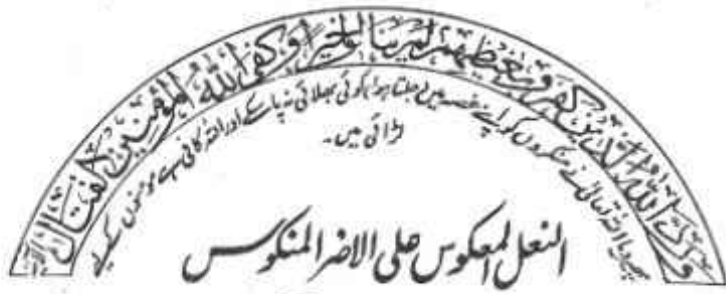 ورد الله الذين كفروا بغيظهم لم ينالوا خيرا وكفى الله المؤمنين القتال
پھیر دیا اللہ تعالیٰ نے منکروں کو اپنے غصہ میں جلتا ہوا کوئی بھلائی نہ پا سکے اور اللہ کافی ہے مومنوں کے لیے
لڑائی میں۔
النعل المعکوس علی الاضر المنکوس